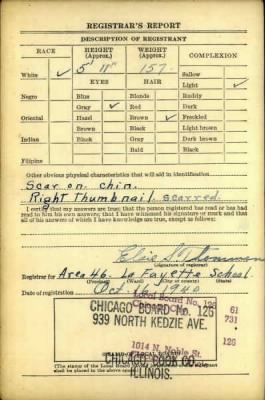 REGISTRAR'S REPORT
DESCRIPTION OF REGISTRANT
RACE HEIGHT (Approx.) WEIGHT (Approx.) COMPLEXION
White ✓ 5' 11" 157 Sallow
EYES HAIR Light ✓
Negro Blue Blonde Ruddy
Gray ✓ Red Dark
Oriental Hazel Brown ✓ Freckled
Brown Black Light brown
Indian Black Gray Dark brown
Bald Black
Filipino
Other obvious physical characteristics that will aid in identification
Scar on chin.
Right Thumbnail scarred
I certify that my answers are true; that the person registered has read or has
had read to him his own answers; that I have witnessed his signature or mark and that
all of his answers of which I have knowledge are true, except as follows:
Elsie S.
(Signature of registrar)
Registrar for Area 46. La Fayette School
(Precinct) (Ward) (City or county) (State)
Date of registration Oct. 16, 1940
Local Board No. 126 61
CHICAGO BOARD No. 126 731
939 NORTH KEDZIE AVE.
1014 N. Noble St. 126
CHICAGO COOK CO.
ILLINOIS.
(The stamp of the Local Board
shall be placed in the above space)